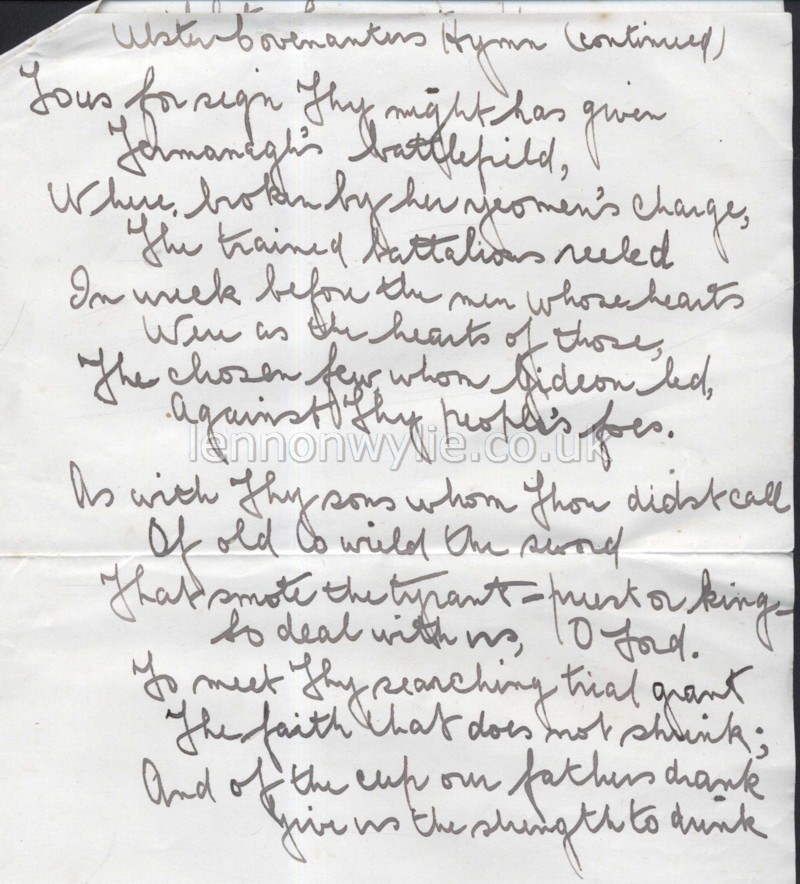 Ulster Covenanters Hymn (continued)
To us for sign Thy might has given
Fermanagh's battlefield,
Where, broken by her yeomen's charge,
The trained battalions reeled
In wreck before the men whose hearts
Were as the hearts of those,
The chosen few whom Gideon led,
Against Thy people's foes.
lennonwylie.co.uk
As with Thy sons whom Thou didst call
Of old to wield the sword
That smote the tyrant – priest or king –
So deal with us, O Lord.
To meet Thy searching trial grant
The faith that does not shrink;
And of the cup our fathers drank
Give us the strength to drink